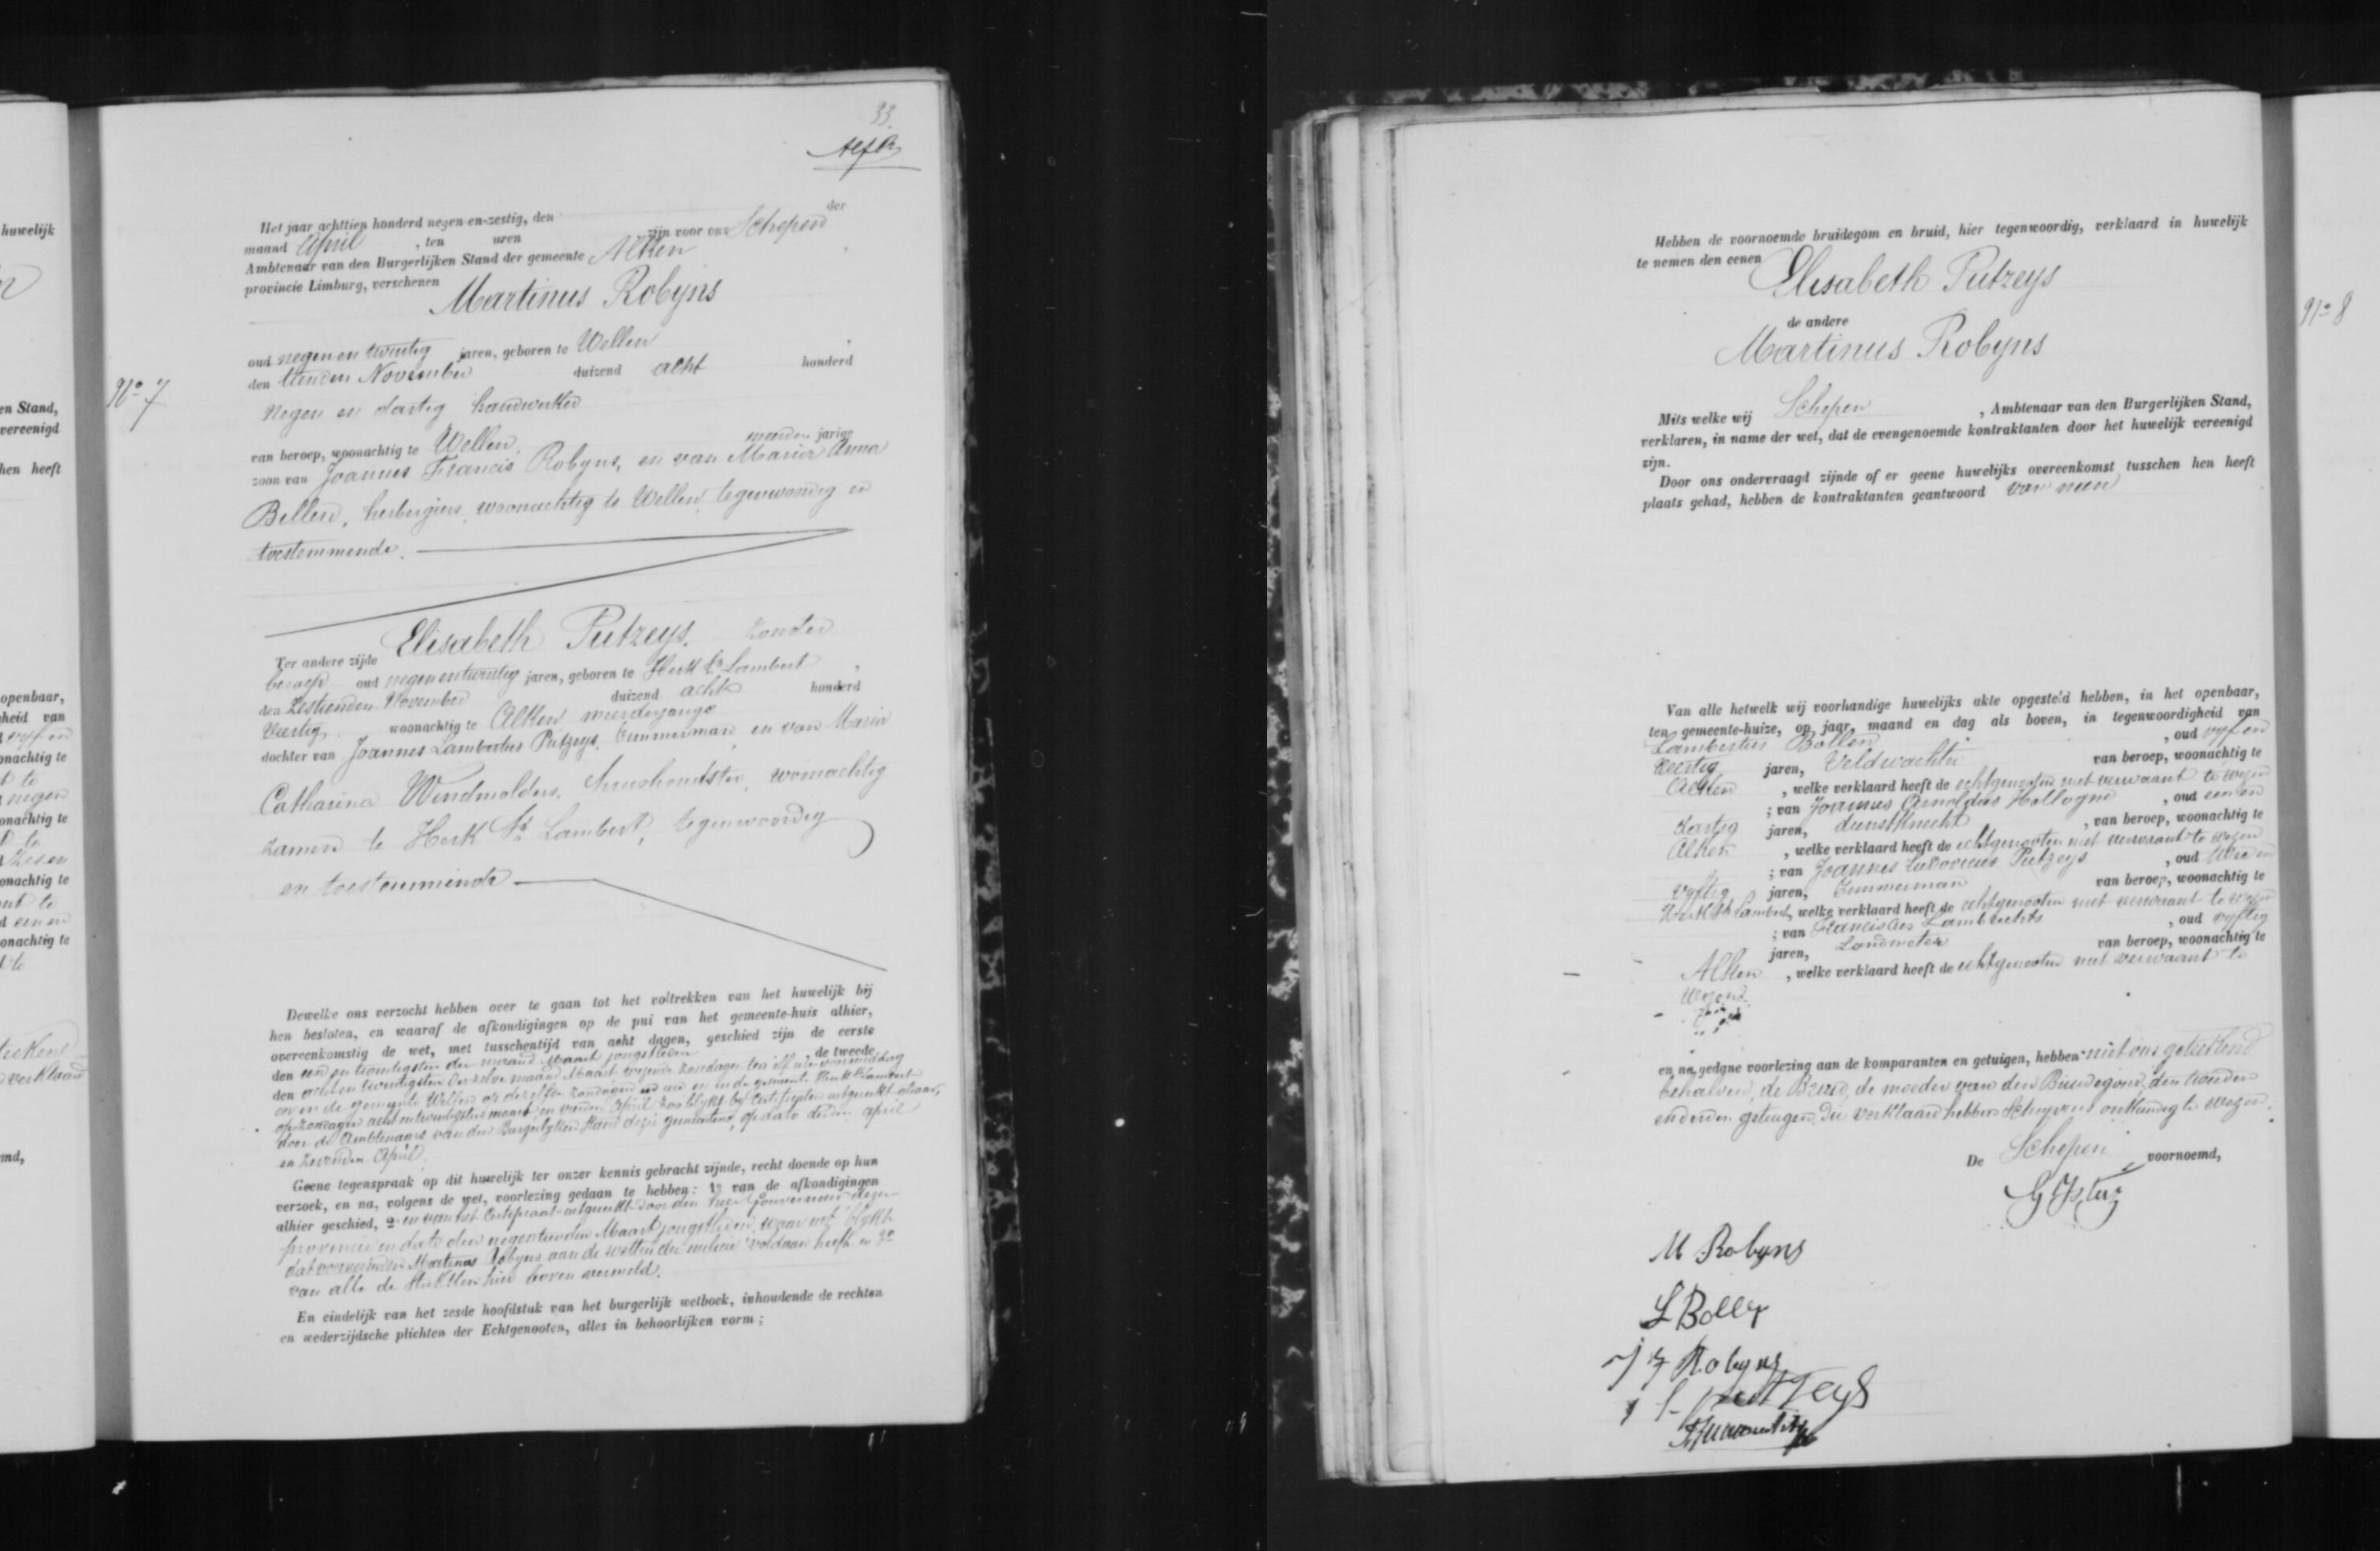 33.
Het jaar achttien honderd negen-en-zestig, den der
maand April , ten uren zijn voor ons Schepen
Ambtenaar van den Burgerlijken Stand der gemeente Alken
provincie Limburg, verschenen
Martinus Robyns
oud negen en twintig jaren, geboren te Wellen ,
den tienden November duizend acht honderd
Nº 7
negen en dartig handwerker
van beroep, woonachtig te Wellen, meerderjarige
zoon van Joannes Francis Robyns, en van Maria Anna
Bellen, herbergiers, woonachtig te Wellen, tegenwoordig en
toestemmende.
Ter andere zijde Elisabeth Putzeys, zonder
beroep oud negen en twintig jaren, geboren te Herk St Lambert ,
den Zestienden November duizend acht honderd
Veertig woonachtig te Alken meerderjarige
dochter van Joannes Lambertus Putzeys, Timmerman, en van Maria
Catharina Windmolders, huishoudster, woonachtig
zamen te Herk St Lambert, tegenwoordig
en toestemmende
Dewelke ons verzocht hebben over te gaan tot het voltrekken van het huwelijk bij
hen besloten, en waaraf de afkondigingen op de pui van het gemeente-huis alhier,
overeenkomstig de wet, met tusschentijd van acht dagen, geschied zijn de eerste
den een en twintigsten der maand Maart jongstleden de tweede
den acht en twintigsten derzelve maand Maart wezende zondagen ten elf uren voormiddag
en in de gemeente Wellen op dezelfde zondagen en in de gemeente Herk St Lambert
op zondagen acht en twintigsten maart en vierden April zoo blykt by Certificaten uitgereikt
door de Ambtenaars van den Burgerlyken stand dezer gemeentens, op dato derden april
en zevenden April.
Geene tegenspraak op dit huwelijk ter onzer kennis gebracht zijnde, recht doende op hun
verzoek, en na, volgens de wet, voorlezing gedaan te hebben: 1º van de afkondigingen
alhier geschied, 2º en van het Certificaat uitgereikt door den heer Gouverneur dezer
provincie in dato den negentienden Maart jongstleden waar uit blykt
dat voornoemden Martinus Robyns aan de wetten der milicie voldaan heeft en 3º
van alle de stukken hier boven vermeld.
En eindelijk van het zesde hoofdstuk van het burgerlijk wetboek, inhoudende de rechten
en wederzijdsche plichten der Echtgenooten, alles in behoorlijken vorm ;
Hebben de voornoemde bruidegom en bruid, hier tegenwoordig, verklaard in huwelijk
te nemen den eenen
Elisabeth Putzeys
de andere
Martinus Robyns
Mits welke wij Schepen , Ambtenaar van den Burgerlijken Stand,
verklaren, in name der wet, dat de evengenoemde kontraktanten door het huwelijk vereenigd
zijn.
Door ons ondervraagd zijnde of er geene huwelijks overeenkomst tusschen hen heeft
plaats gehad, hebben de kontraktanten geantwoord van neen
Van alle hetwelk wij voorhandige huwelijks akte opgesteld hebben, in het openbaar,
ten gemeente-huize, op jaar, maand en dag als boven, in tegenwoordigheid van
Lambertus Bollen , oud vyf en
Veertig jaren, Veldwachter van beroep, woonachtig te
Alken , welke verklaard heeft de echtgenooten niet verwaant te wezen
; van Joannes Arnoldus Hallogne , oud een en
dartig jaren, dienstknecht , van beroep, woonachtig te
Alken , welke verklaard heeft de echtgenooten niet verwaant te wezen
; van Joannes Ludovicus Putzeys , oud twee en
vyftig jaren, Timmerman van beroep, woonachtig te
Herk St Lambert, welke verklaard heeft de echtgenooten niet verwaant te wezen
; van Franciscus Lambrechts , oud vyftig
jaren, Landmeter van beroep, woonachtig te
Alken , welke verklaard heeft de echtgenooten niet verwaant te
wezen.
en na gedane voorlezing aan de komparanten en getuigen, hebben met ons geteekend
behalven de Bruid, de moeder van den Bruidegom, den tweeden
en derden getuigen, die verklaard hebben schryvens onkundig te wezen.
De Schepen voornoemd,
M Robyns
L Bollen
J F Robyns
J L putzeys
Nº 8